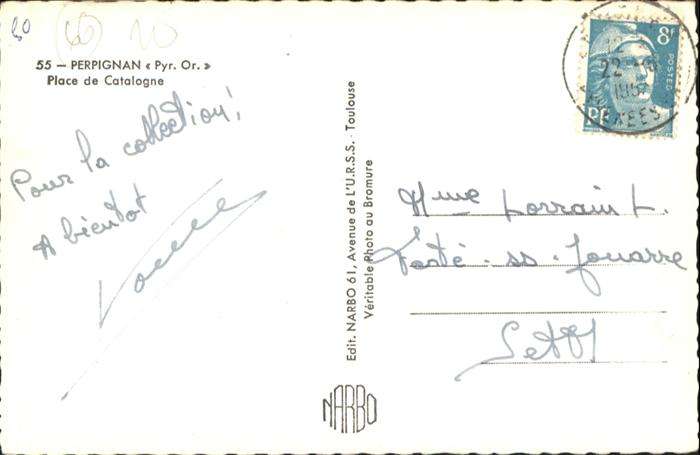 50
60
10
55 — PERPIGNAN « Pyr. Or. »
Place de Catalogne
Pour la collection!
A bientot
Edit. NARBO 61, Avenue de L'U.R.S.S. - Toulouse
Véritable Photo au Bromure
NARBO
8F
POSTES
RF
22
Mme Lorrain L.
Ferté-ss-Jouarre
S et M